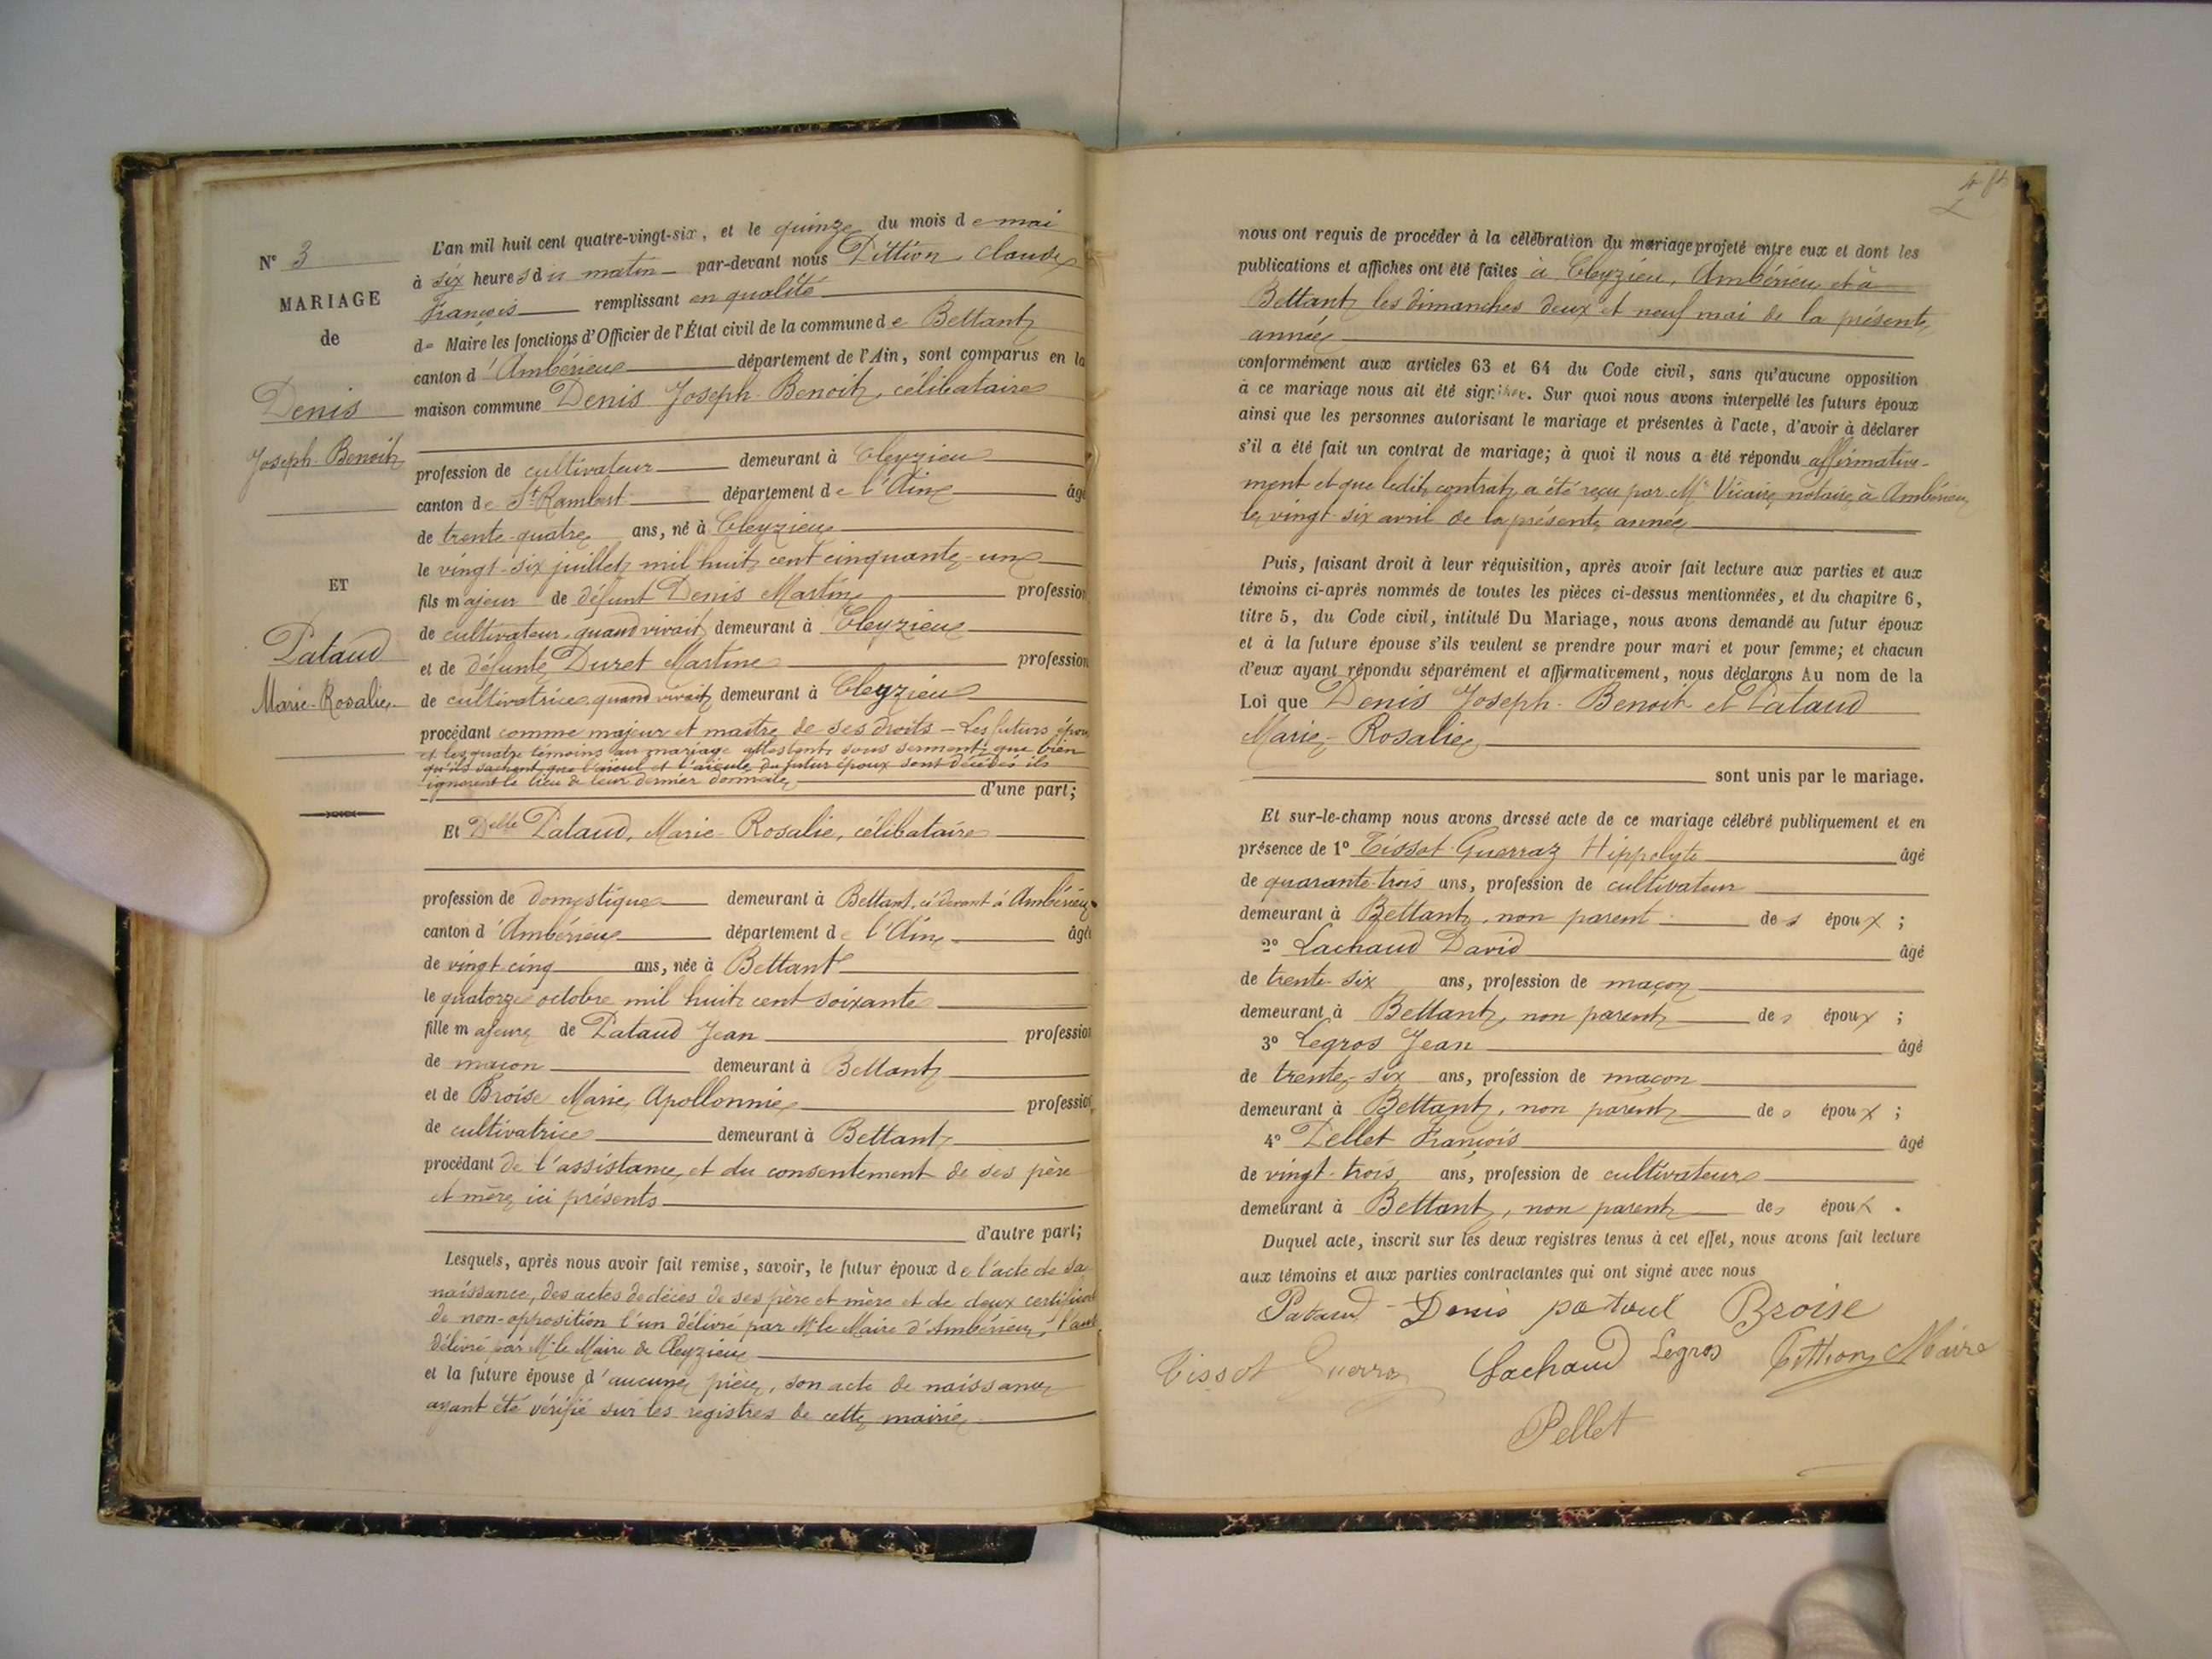 N° 3
MARIAGE
de
Denis
Joseph-Benoit
ET
Pataud
Marie-Rosalie
L'an mil huit cent quatre-vingt-six, et le quinze du mois de mai
à six heures du matin par-devant nous Claude
François remplissant en qualité
de Maire les fonctions d'Officier de l'État civil de la commune de Bettant
canton d'Ambérieu département de l'Ain, sont comparus en la
maison commune Denis Joseph-Benoit, célibataire
profession de cultivateur demeurant à Cleyzieu
canton de St Rambert département de l'Ain âgé
de trente-quatre ans, né à Cleyzieu
le vingt-six juillet mil huit cent cinquante-un
fils majeur de défunt Denis Martin profession
de cultivateur quand vivait demeurant à Cleyzieu
et de défunte Duret Martine profession
de cultivatrice quand vivait demeurant à Cleyzieu
procédant comme majeur et maître de ses droits – Les futurs époux
et les quatre témoins au mariage attestent sous serment que bien
qu'ils sachent que l'aieul et l'aieule du futur époux sont décédés ils
ignorent le lieu de leur dernier domicile
d'une part;
Et Delle Pataud, Marie-Rosalie, célibataire
profession de domestique demeurant à Bettant, ci-devant à Ambérieu
canton d'Ambérieu département de l'Ain âgée
de vingt cinq ans, née à Bettant
le quatorze octobre mil huit cent soixante
fille majeure de Pataud Jean profession
de maçon demeurant à Bettant
et de Broise Marie Apollonnie profession
de cultivatrice demeurant à Bettant
procédant de l'assistance et du consentement de ses père
et mère ici présents
d'autre part;
Lesquels, après nous avoir fait remise, savoir, le futur époux de l'acte de sa
naissance, des actes de décès de ses père et mère et de deux certificats
de non-opposition l'un délivré par Mr le Maire d'Ambérieu, l'autre
délivré par Mr le Maire de Cleyzieu
et la future épouse d'aucune pièce, son acte de naissance
ayant été vérifié sur les registres de cette mairie
nous ont requis de procéder à la célébration du mariage projeté entre eux et dont les
publications et affiches ont été faites à Cleyzieu, Ambérieu et à
Bettant les dimanches deux et neuf mai de la présente
année
conformément aux articles 63 et 64 du Code civil, sans qu'aucune opposition
à ce mariage nous ait été signifiée. Sur quoi nous avons interpellé les futurs époux
ainsi que les personnes autorisant le mariage et présentes à l'acte, d'avoir à déclarer
s'il a été fait un contrat de mariage; à quoi il nous a été répondu affirmative-
ment et que ledit contrat a été reçu par Me Vicaire notaire à Ambérieu
le vingt-six avril de la présente année
Puis, faisant droit à leur réquisition, après avoir fait lecture aux parties et aux
témoins ci-après nommés de toutes les pièces ci-dessus mentionnées, et du chapitre 6,
titre 5, du Code civil, intitulé Du Mariage, nous avons demandé au futur époux
et à la future épouse s'ils veulent se prendre pour mari et pour femme; et chacun
d'eux ayant répondu séparément et affirmativement, nous déclarons Au nom de la
Loi que Denis Joseph-Benoit et Pataud
Marie-Rosalie
sont unis par le mariage.
Et sur-le-champ nous avons dressé acte de ce mariage célébré publiquement et en
présence de 1° Tissot-Guerraz Hippolyte âgé
de quarante-trois ans, profession de cultivateur
demeurant à Bettant, non parent des époux ;
2° Lachaud David âgé
de trente-six ans, profession de maçon
demeurant à Bettant, non parent des époux ;
3° Legros Jean âgé
de trente-six ans, profession de maçon
demeurant à Bettant, non parent des époux ;
4° Pellet François âgé
de vingt-trois ans, profession de cultivateur
demeurant à Bettant, non parent des époux .
Duquel acte, inscrit sur les deux registres tenus à cet effet, nous avons fait lecture
aux témoins et aux parties contractantes qui ont signé avec nous
Pataud Denis Broise
Tissot Guerraz Lachaud Legros Maire
Pellet